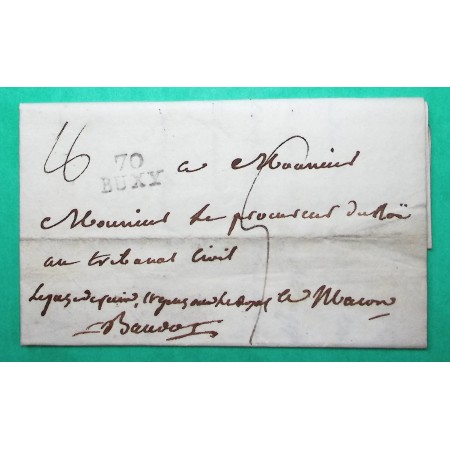 70
BUXY
a Monsieur
Monsieur le procureur du Roi
au tribunal Civil
Le juge de paix, a Macon
Baudot